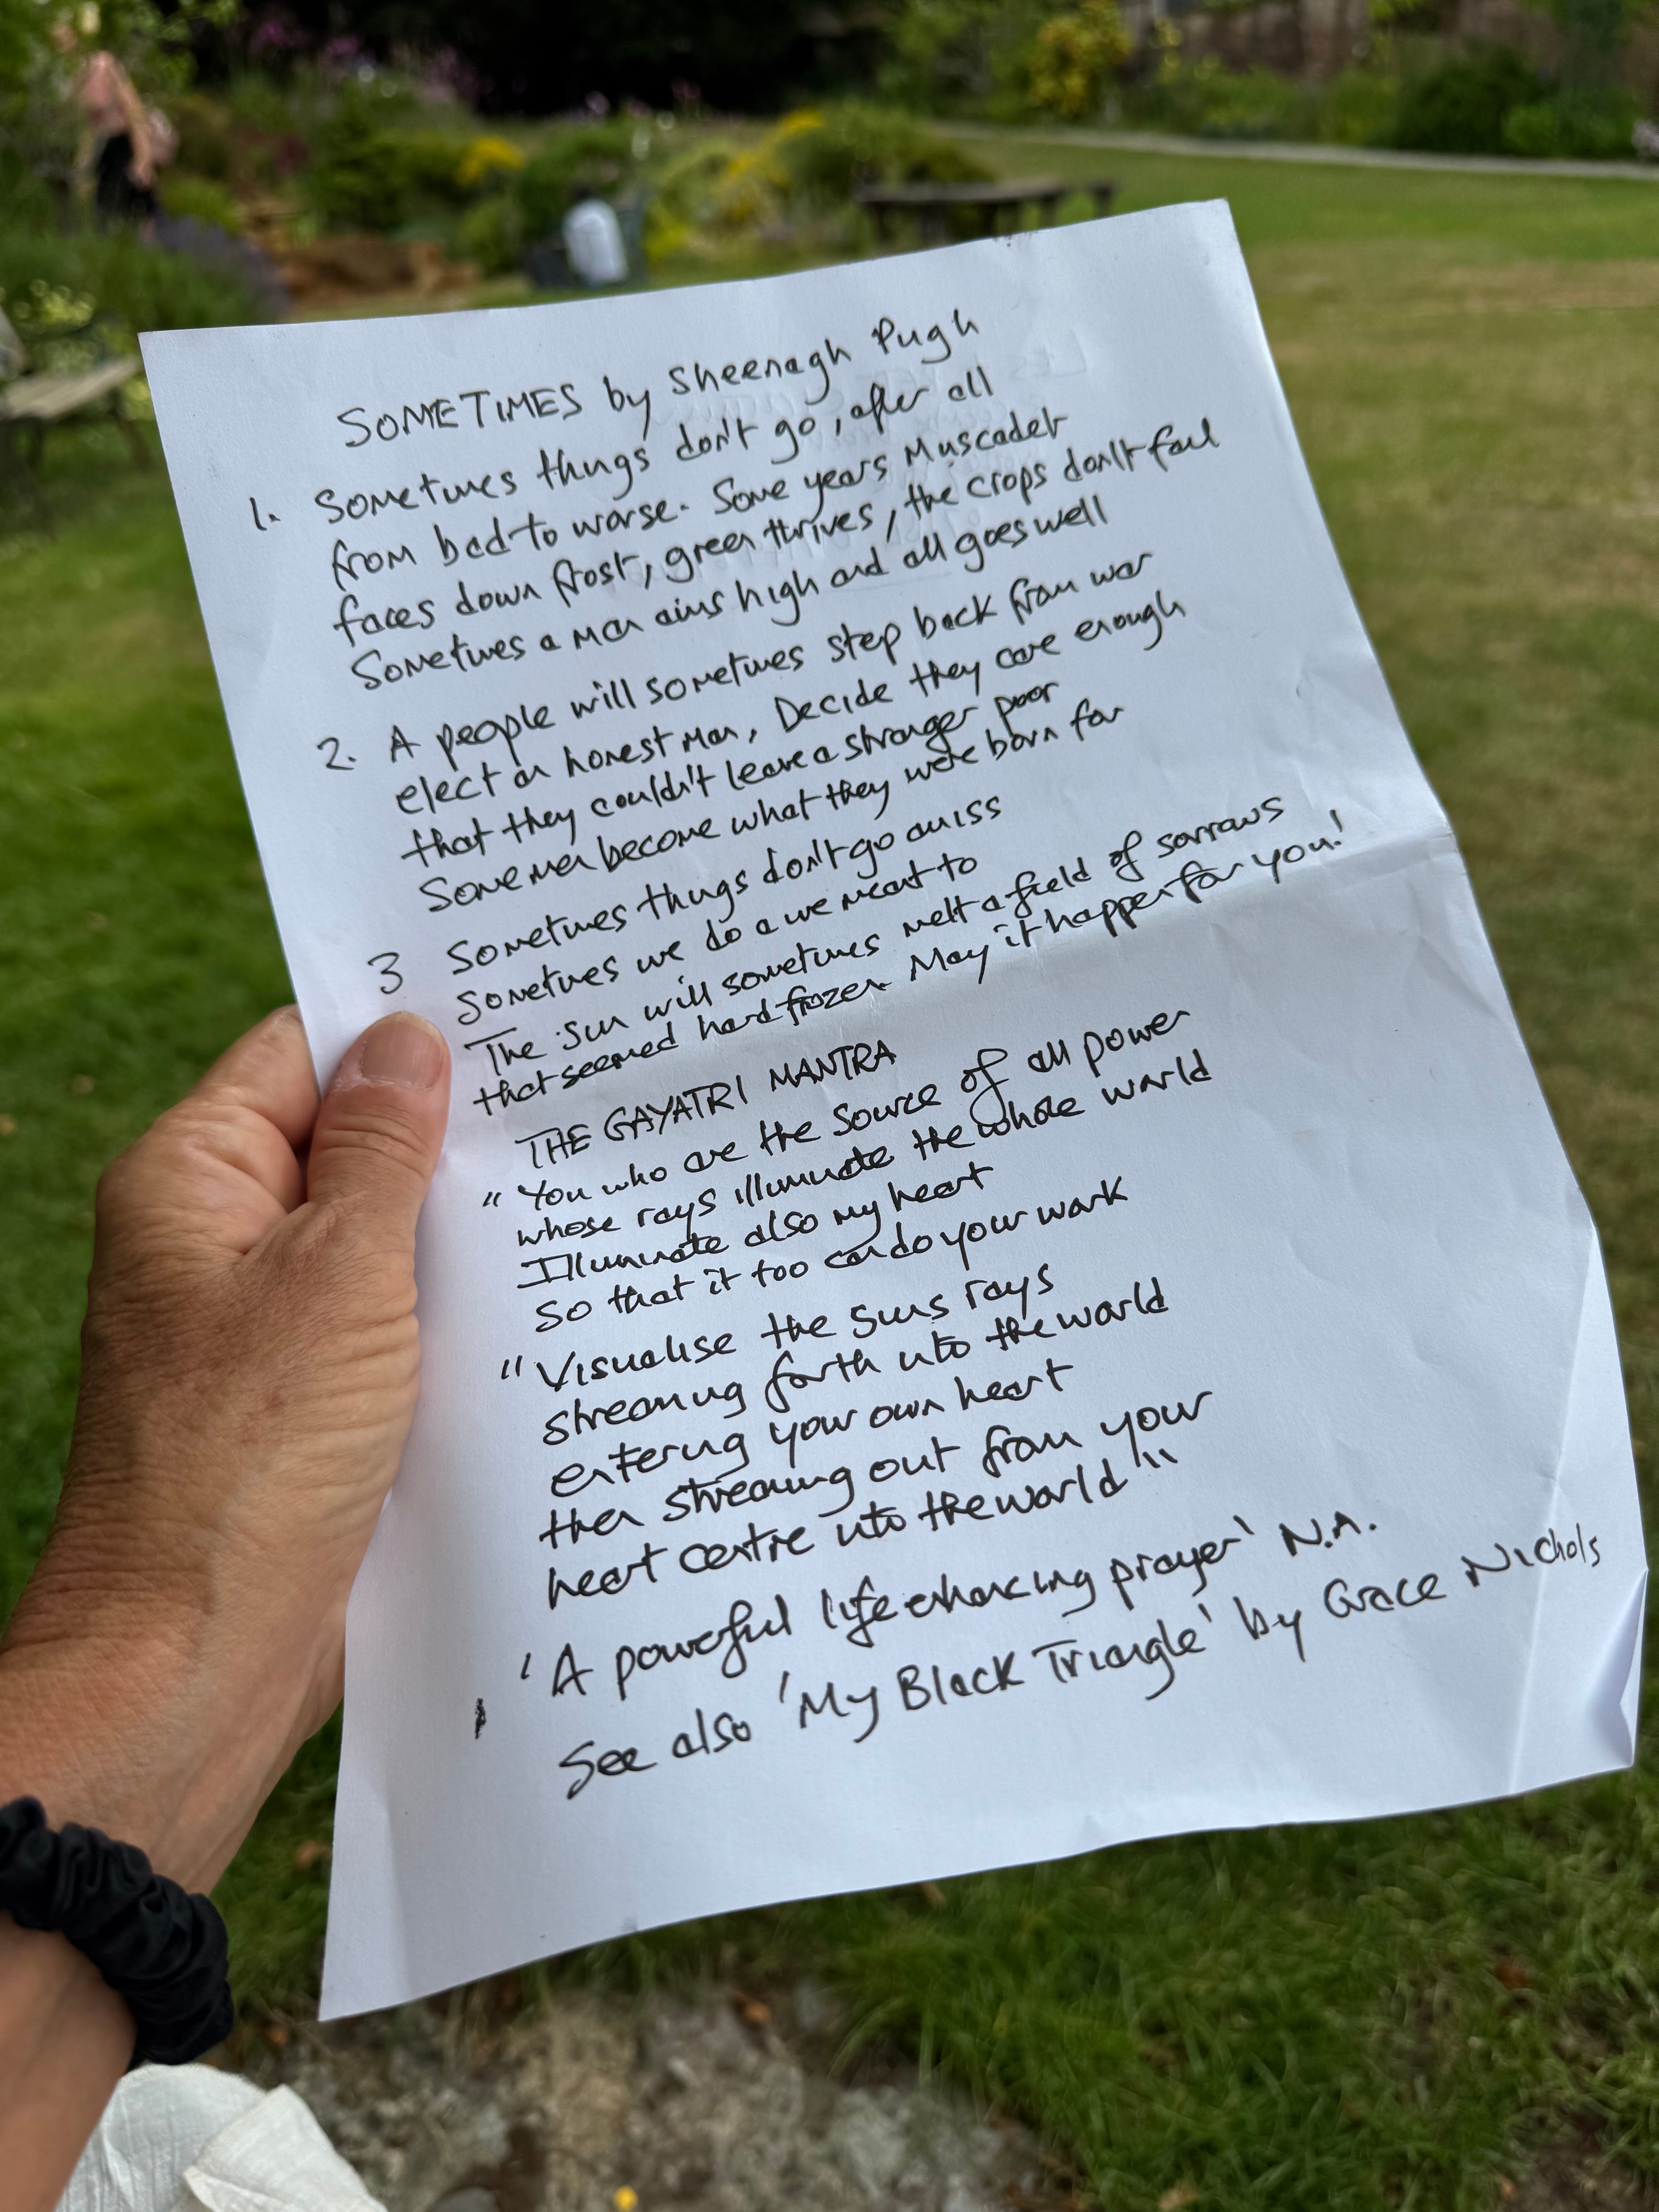 SOMETIMES by Sheenagh Pugh
1. Sometimes things don't go, after all
from bad to worse. Some years Muscadet
faces down frost, green thrives, the crops don't fail
Sometimes a man aims high and all goes well
2. A people will sometimes step back from war
elect an honest man, Decide they care enough
that they couldn't leave a stranger poor
Some men become what they were born for
3 Sometimes things don't go amiss
Sometimes we do a we meant to
The sun will sometimes melt a field of sorrows
that seemed hard frozen. May it happen for you!
THE GAYATRI MANTRA
"You who are the source of all power
whose rays illuminate the whole world
Illuminate also my heart
So that it too can do your work
"Visualise the suns rays
streaming forth into the world
entering your own heart
then streaming out from your
heart centre into the world"
'A powerful life enhancing prayer' N.A.
See also 'My Black Triangle' by Grace Nichols